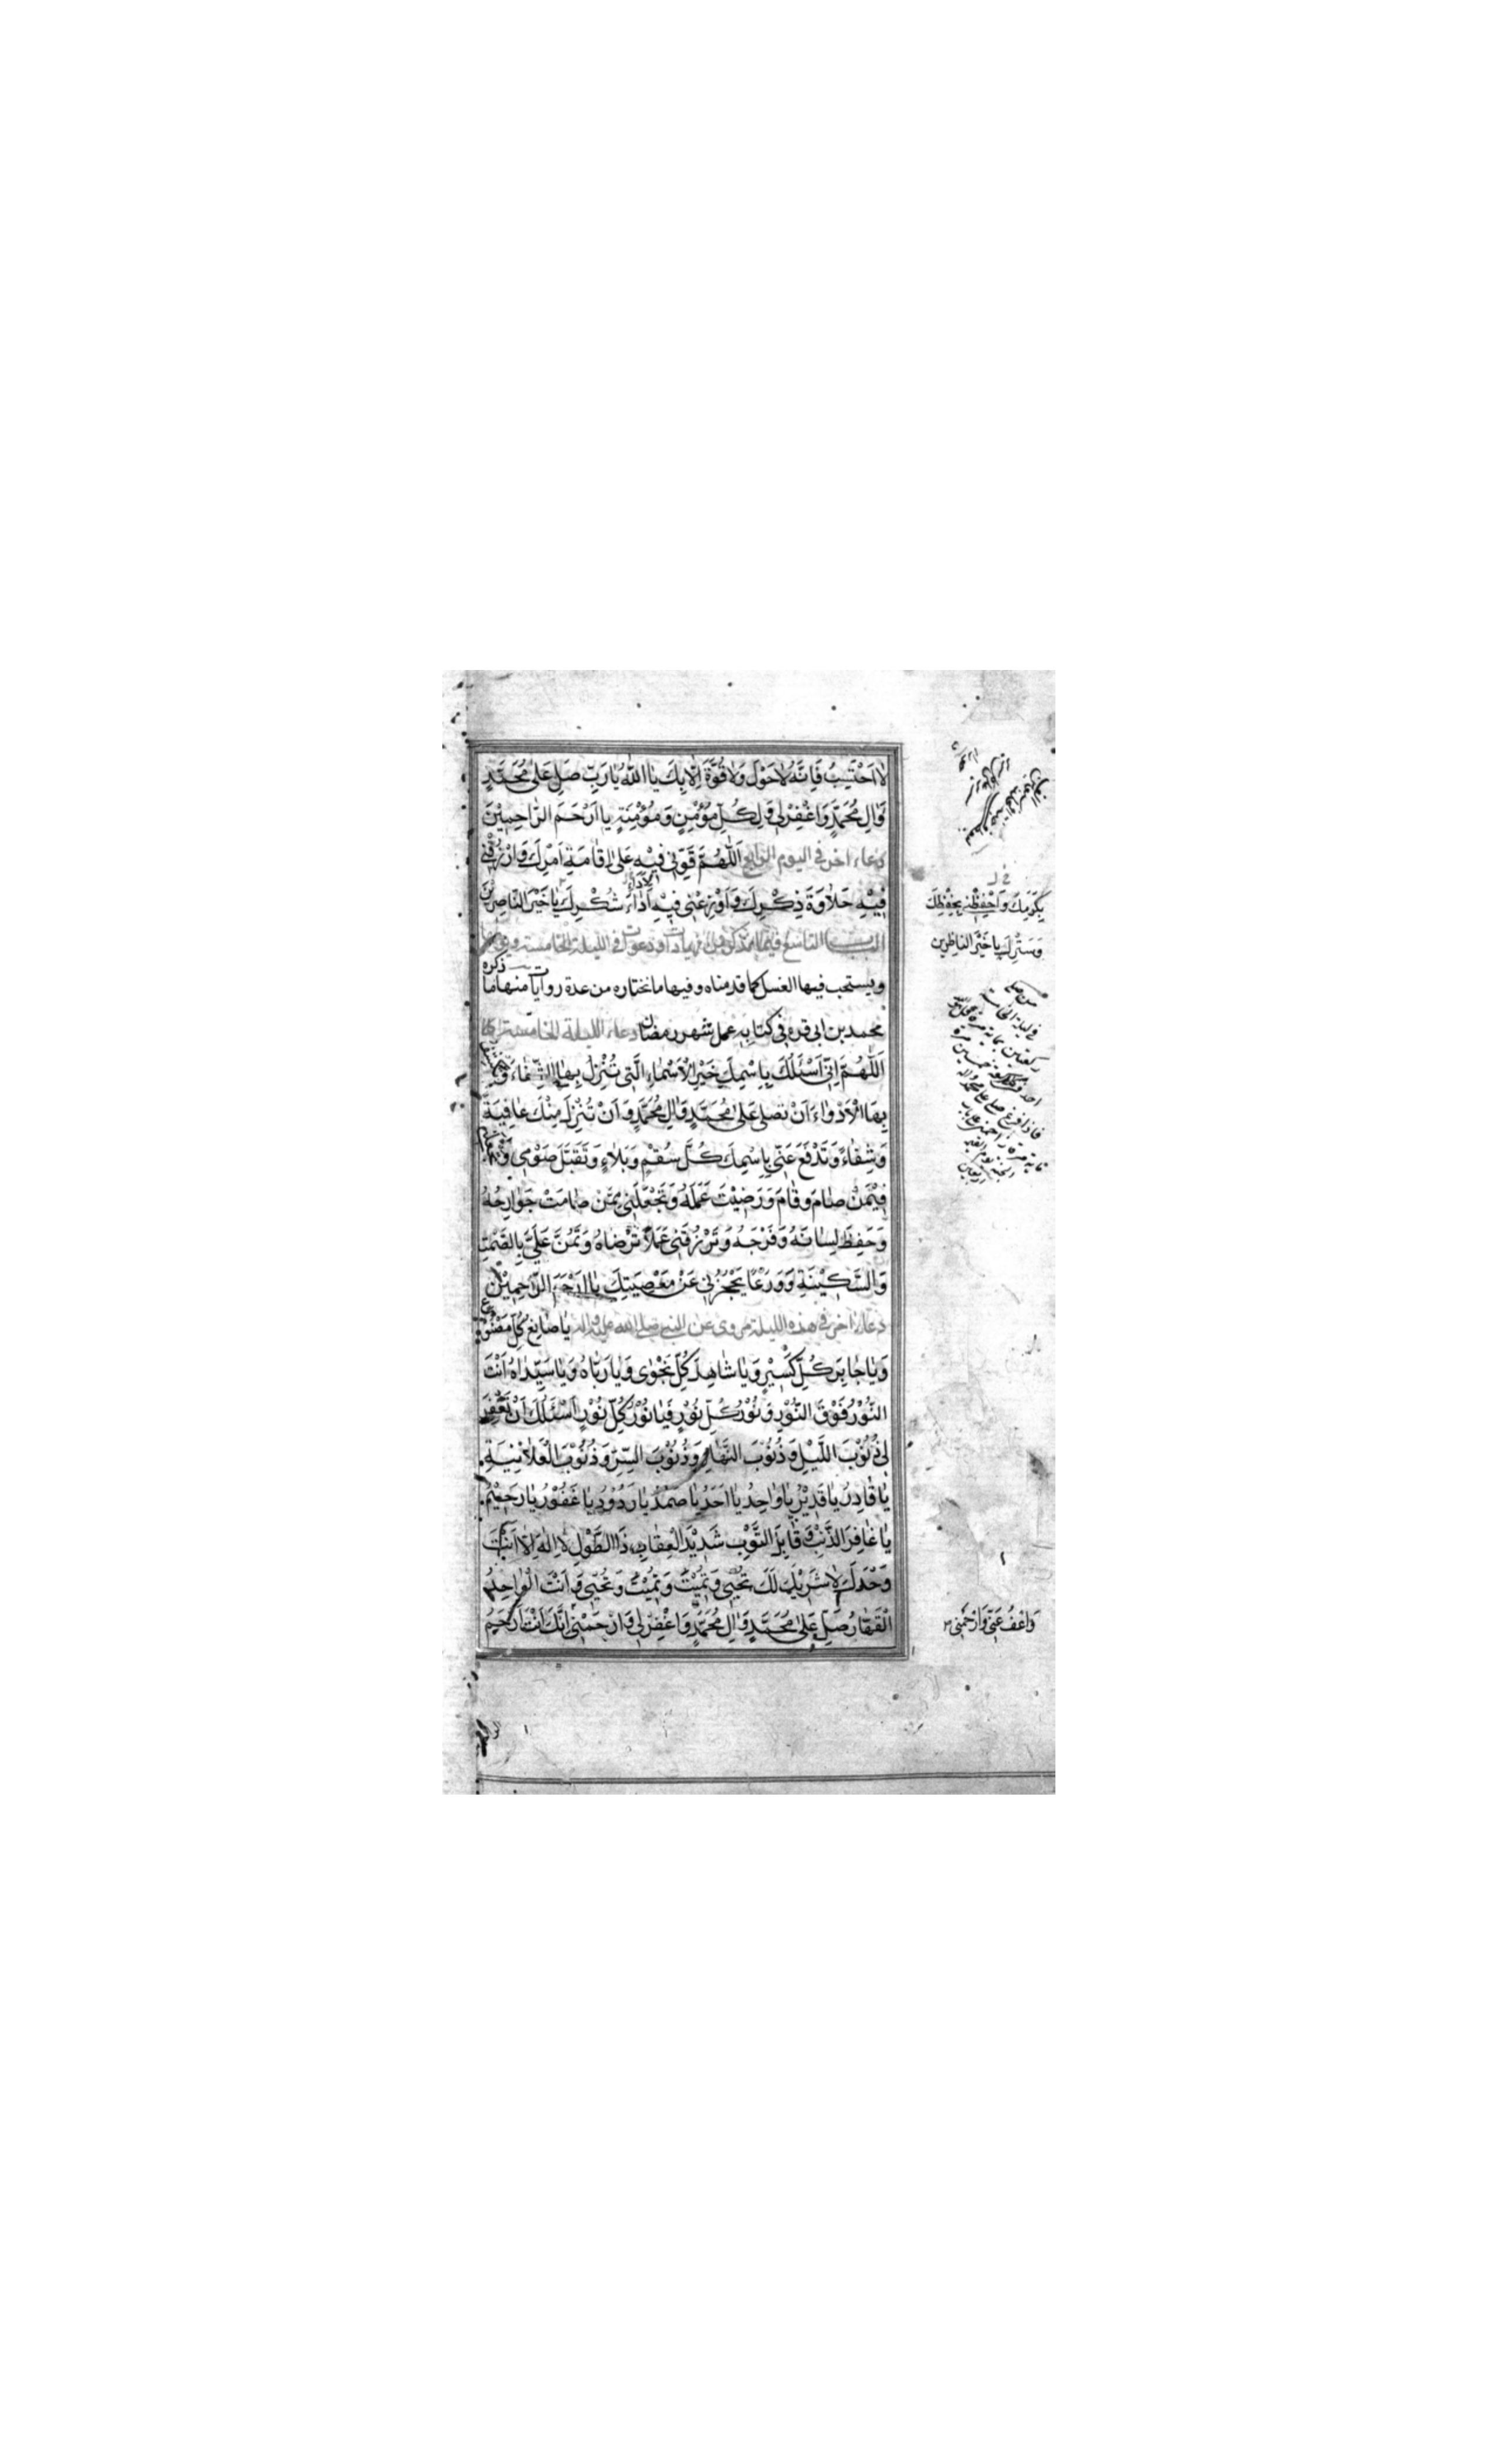 لَا اَحْتَسِبُ فَاِنَّهُ لَا حَوْلَ وَلَا قُوَّةَ اِلَّا بِكَ يَا اَللّٰهُ يَا رَبِّ صَلِّ عَلٰى مُحَمَّدٍ
وَاٰلِ مُحَمَّدٍ وَاغْفِرْ لِي وَلِكُلِّ مُؤْمِنٍ وَمُؤْمِنَةٍ يَا اَرْحَمَ الرَّاحِمِيْنَ
دعاء اخر في اليوم الرابع اَللّٰهُمَّ قَوِّنِي فِيْهِ عَلٰى اِقَامَةِ اَمْرِكَ وَارْزُقْنِي
فِيْهِ حَلَاوَةَ ذِكْرِكَ وَاَوْزِعْنِي فِيْهِ اَدَاءَ شُكْرِكَ يَا خَيْرَ النَّاصِرِيْنَ
لاداء
بِكَرَمِكَ وَاحْفَظْنِي بِحِفْظِكَ
وَسَتْرِكَ يَا خَيْرَ النَّاظِرِين
الباب التاسع فيما نذكره من زيادات ودعوات في الليلة الخامسة ويومها
ويستحب فيها الغسل كما قدمناه وفيها ما نختاره من عدة روايات منها ما ذكره
محمد بن ابي قره في كتابه عمل شهر رمضان دعاء الليلة الخامسة
اَللّٰهُمَّ اِنِّي اَسْئَلُكَ بِاِسْمِكَ خَيْرِ الْاَسْمَاءِ الَّتِي تُنْزِلُ بِهَا الشِّفَاءَ وَتَكْشِفُ
بِهَا الْاَدْوَاءَ اَنْ تصلي عَلٰى مُحَمَّدٍ وَاٰلِ مُحَمَّدٍ وَاَنْ تُنْزِلَ مِنْكَ عَافِيَةً
وَشِفَاءً وَتَدْفَعَ عَنِّي بِاِسْمِكَ كُلَّ سُقْمٍ وَبَلَاءٍ وَتَقَبَّلَ صَوْمِي وَتَجْعَلَنِي
فِيْمَنْ صَامَ وَقَامَ وَرَضِيْتَ عَمَلَهُ وَتَجْعَلَنِي مِمَّنْ صَامَتْ جَوَارِحُهُ
وَحَفِظَ لِسَانَهُ وَفَرْجَهُ وَتَرْزُقَنِي عَمَلًا تَرْضَاهُ وَتَمُنَّ عَلَيَّ بِالصَّمْتِ
وَالسَّكِيْنَةِ وَوَرَعًا يَحْجُزُنِي عَنْ مَعْصِيَتِكَ يَا اَرْحَمَ الرَّاحِمِيْنَ
دعاء اخر في هذه الليلة مروي عن النبي صلى الله عليه واله يَا صَانِعَ كُلِّ مَصْنُوْعٍ
وَيَا جَابِرَ كُلِّ كَسِيْرٍ وَيَا شَاهِدَ كُلِّ نَجْوٰى وَيَا رَبَّاهُ وَيَا سَيِّدَاهُ اَنْتَ
النُّوْرُ فَوْقَ النُّوْرِ وَنُوْرُ كُلِّ نُوْرٍ فَيَا نُوْرَ كُلِّ نُوْرٍ اَسْئَلُكَ اَنْ تَغْفِرَ
لِي ذُنُوْبَ اللَّيْلِ وَذُنُوْبَ النَّهَارِ وَذُنُوْبَ السِّرِّ وَذُنُوْبَ الْعَلَانِيَةِ
يَا قَادِرُ يَا قَدِيْرُ يَا وَاحِدُ يَا اَحَدُ يَا صَمَدُ يَا وَدُوْدُ يَا غَفُوْرُ يَا رَحِيْمُ
يَا غَافِرَ الذَّنْبِ وَقَابِلَ التَّوْبِ شَدِيْدَ الْعِقَابِ ذَا الطَّوْلِ لَا اِلٰهَ اِلَّا اَنْتَ
وَحْدَكَ لَا شَرِيْكَ لَكَ تُحْيِي وَتُمِيْتُ وَتُمِيْتُ وَتُحْيِي وَاَنْتَ الْوَاحِدُ
الْقَهَّارُ صَلِّ عَلٰى مُحَمَّدٍ وَاٰلِ مُحَمَّدٍ وَاغْفِرْ لِي وَارْحَمْنِي اِنَّكَ اَنْتَ الرَّحِيْمُ
وَاعْفُ عَنِّي وَارْحَمْنِي